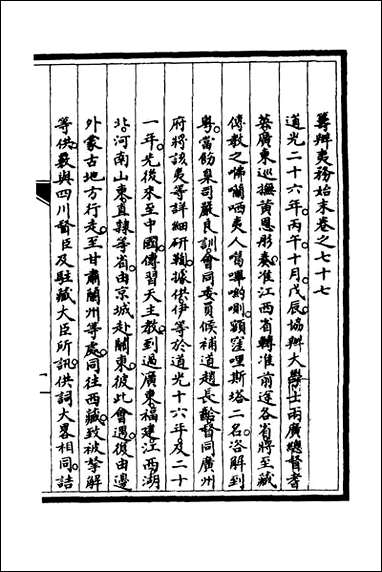 籌辦夷務始末卷之七十七
道光二十六年丙午十月戊辰協辦大學士兩廣總督耆
英廣東巡撫黃恩彤奏准江西省轉准前途各省將至藏
傳教之咈囒哂夷人噶嗶喲則額窪哩斯塔二名咨解到
粵當飭臬司嚴良訓會同委員候補道趙長齡督同廣州
府將該夷等詳細研鞫據供伊等於道光十六年及二十
一年先後來至中國傳習天主教到過廣東福建江西湖
北河南山東直隸等省由京城赴關東彼此會遇復由邊
外蒙古地方行走至甘肅蘭州等處同往西藏致被拏解
等供覈與四川督臣及駐藏大臣所訊供詞大畧相同詰
一